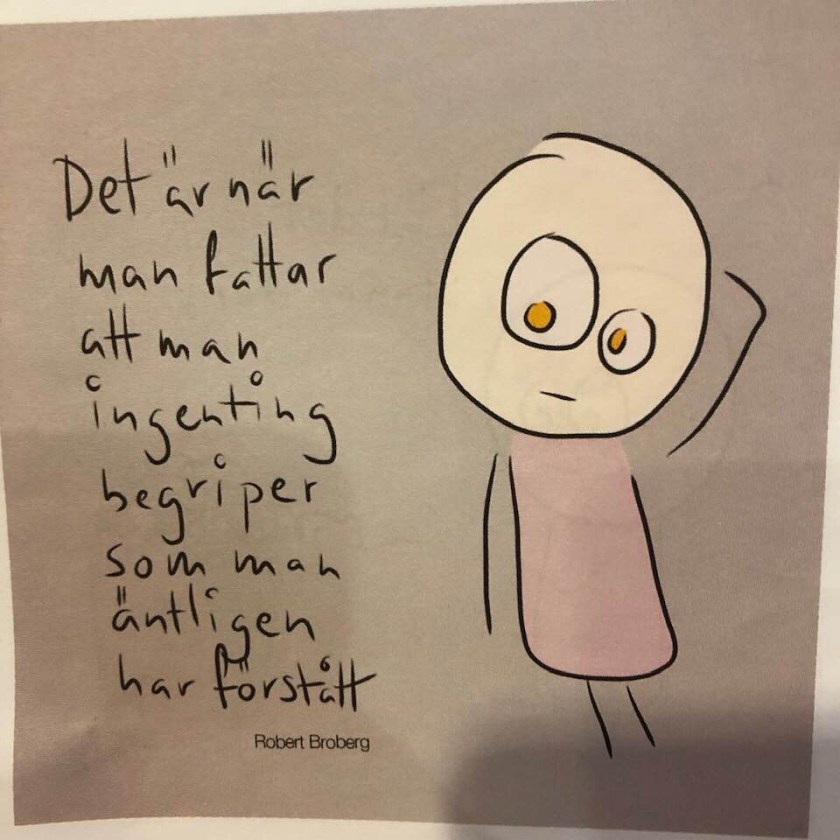 Det är när
man fattar
att man
ingenting
begriper
som man
äntligen
har förstått
Robert Broberg